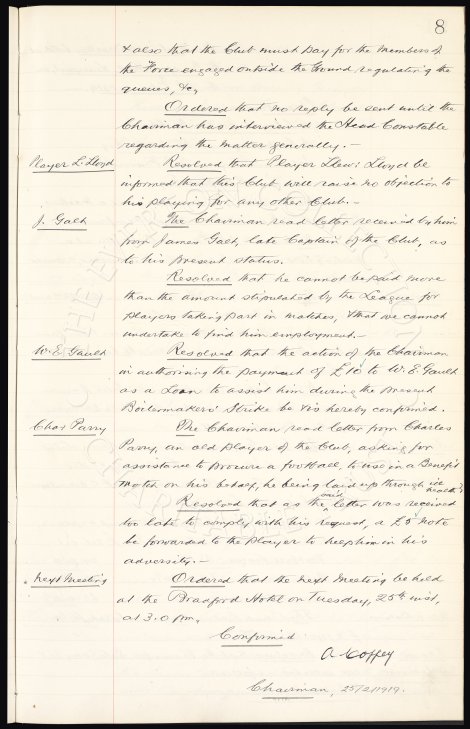 8
& also that the Club must pay for the Members of
the Force engaged outside the Ground regulating the
queues, &c,
Ordered that no reply be sent until the
Chairman has interviewed the Head Constable
regarding the matter generally. —
Player L. Lloyd
Resolved that Player Llew: Lloyd be
informed that this Club will raise no objection to
his playing for any other Club. —
J. Galt
The Chairman read letter received by him
from James Galt, late Captain of the Club, as
to his present status.
Resolved that he cannot be paid more
than the amount stipulated by the League for
players taking part in matches, & that we cannot
undertake to find him employment. —
W. E. Gault
Resolved that the action of the Chairman
in authorising the payment of £10 to W. E. Gault
as a Loan to assist him during the present
Boilermakers' Strike be & is hereby confirmed.
Chas Parry
The Chairman read letter from Charles
Parry, an old player of the Club, asking for
assistance to procure a football, to use in a Benefit
match on his behalf, he being laid up through ill health.
Resolved that as the said letter was received
too late to comply with his request, a £5 note
be forwarded to the player to help him in his
adversity. —
Next Meeting
Ordered that the next meeting be held
at the Bradford Hotel on Tuesday, 25th inst,
at 3.0 pm,
Confirmed
A Coffey
Chairman, 25/2/1919.